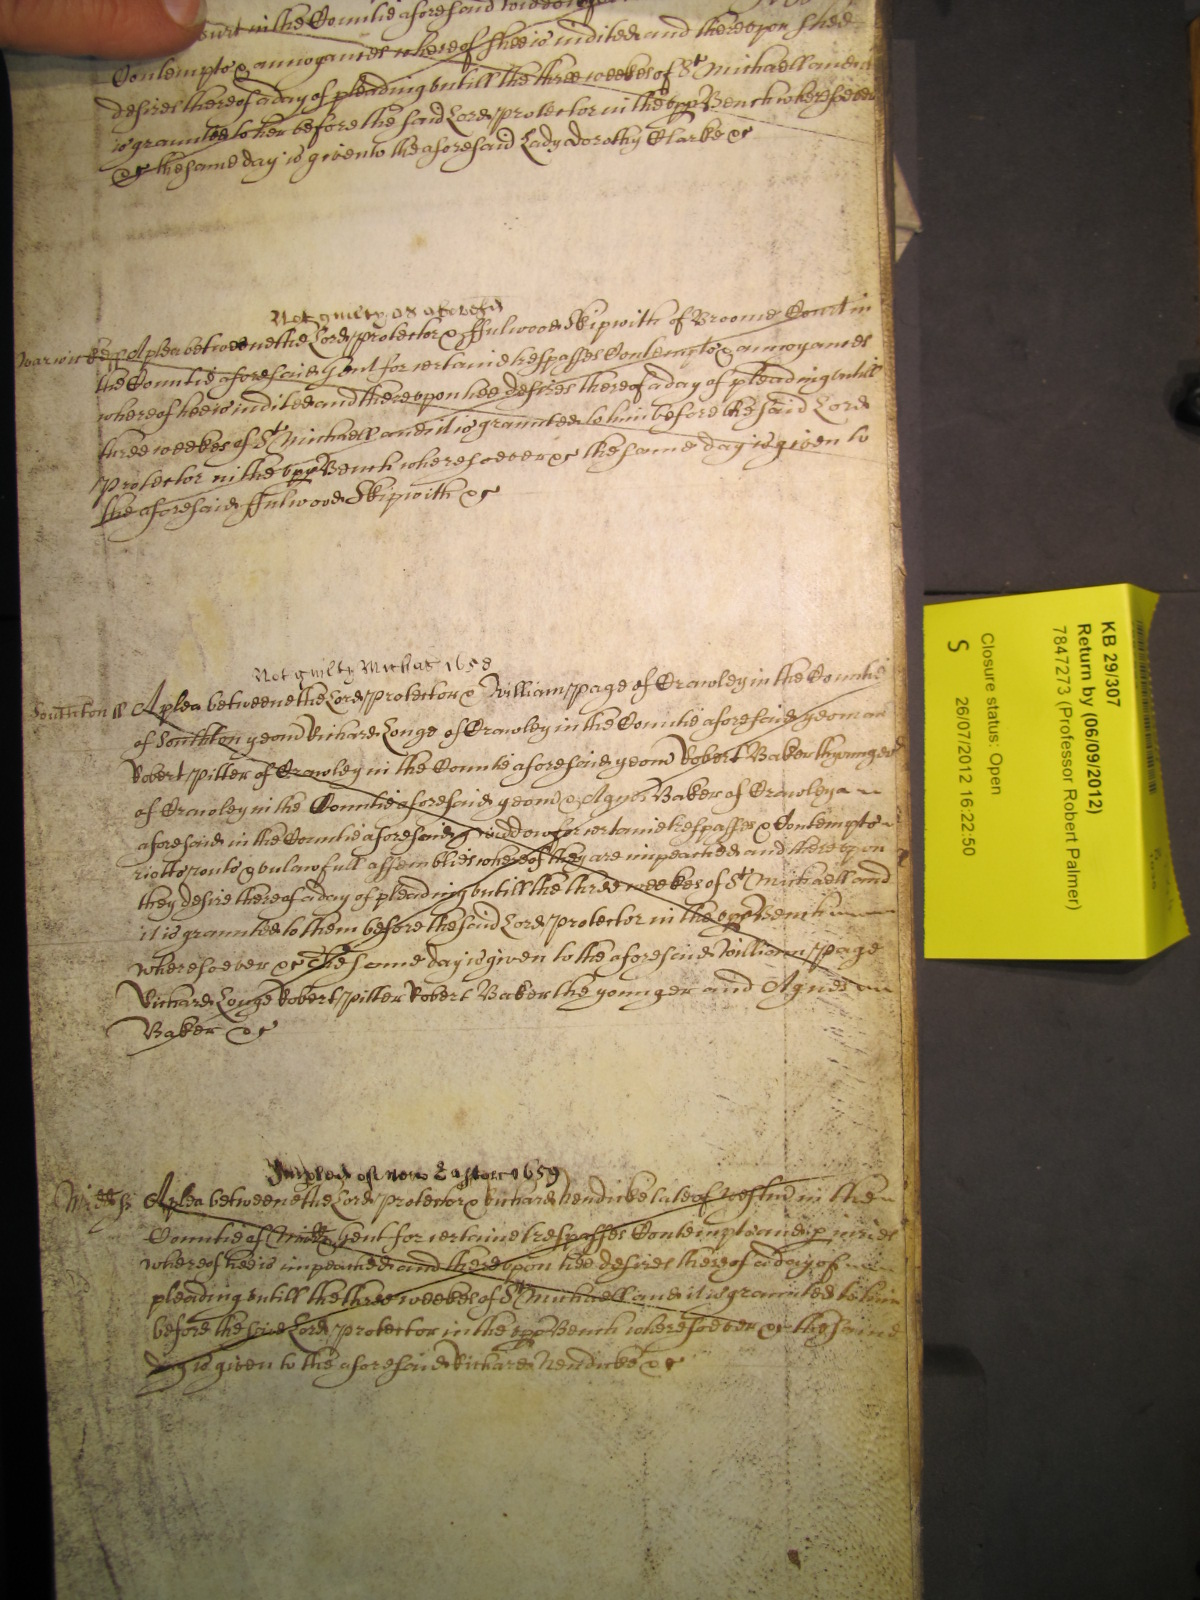 Court in the Countie aforesaid widdow
Contempts & annoyances whereof shee is indited and thereupon shee
desires thereof a day of pleading untill the three weekes of St Michaell and it
is graunted to her before the said Lord Protector in the upp Bench wheresoever
&c the same day is given to the aforesaid Lady Dorothy Clarke &c
Not guilty as aforesd
Warwicke ss A plea betweene the Lord Protector & ffulwood Skipwith of Broome Court in
the Countie aforesaid Gent for certaine trespasses Contempts & annoyances
whereof hee is indited and thereupon hee desires thereof a day of pleading untill
three weekes of St Michaell and it is graunted to him before the said Lord
Protector in the upp Bench wheresoever &c the same day is given to
the aforesaid ffulwood Skipwith &c
Not guilty Michas 1658
Southton ss A plea betweene the Lord Protector & William Page of Crawley in the Countie
of Southton yeom Richard Longe of Crawley in the Countie aforesaid yeoman
Robert Pitter of Crawley in the Countie aforesaid yeom Robert Baker the younger
of Crawley in the Countie aforesaid yeom & Agnes Baker of Crawley
aforesaid in the Countie aforesaid widdow for certaine trespasses & Contempts
riotts routs & unlawfull assemblies whereof they are impeached and thereupon
they desire thereof a day of pleading untill the three weekes of St Michaell and
it is graunted to them before the said Lord Protector in the upp Bench
wheresoever &c The same day is given to the aforesaid William Page
Richard Longe Robert Pitter Robert Baker the younger and Agnes
Baker &c
of new Easter 1659
Midds ss A plea betweene the Lord Protector & Richard Hendicke late of Westm in the
Countie of Midds Gent for certaine trespasses Contempts and
whereof hee is impeached and thereupon hee desires thereof a day of
pleading untill the three weekes of St Michaell and it is graunted to him
before the said Lord Protector in the upp Bench wheresoever &c the same
day is given to the aforesaid Richard Hendicke &c
KB 29/307
Return by (06/09/2012)
7847273 (Professor Robert Palmer)
Closure status: Open
S 26/07/2012 16:22:50